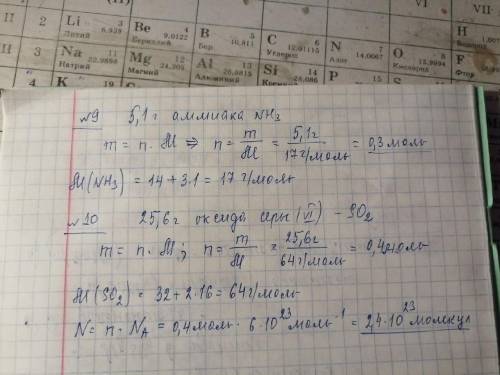 (II) VI VII
II 2 Li 3 6,939 Литий Be 4 9,0122 Бериллий B 5 10,811 Бор C 6 12,01115 Углерод N 7 14,0067 Азот O 8 15,9994 Кислород F Фтор
II 3 Na 11 22,9898 Натрий Mg 12 24,305 Магний Al 13 26,9815 Алюминий Si 14 28,086 Кремний P 15 S
4 K 19
№9 5,1 г аммиака NH3
m = n · M ⇒ n = m/M = 5,1 г/17 г/моль = 0,3 моль
M(NH3) = 14 + 3·1 = 17 г/моль
№10 25,6 г оксида серы (VI) - SO2
m = n · M; n = m/M = 25,6 г/64 г/моль = 0,4 моль
M(SO2) = 32 + 2·16 = 64 г/моль
N = n · NA = 0,4 моль · 6·10²³ моль⁻¹ = 2,4·10²³ молекул